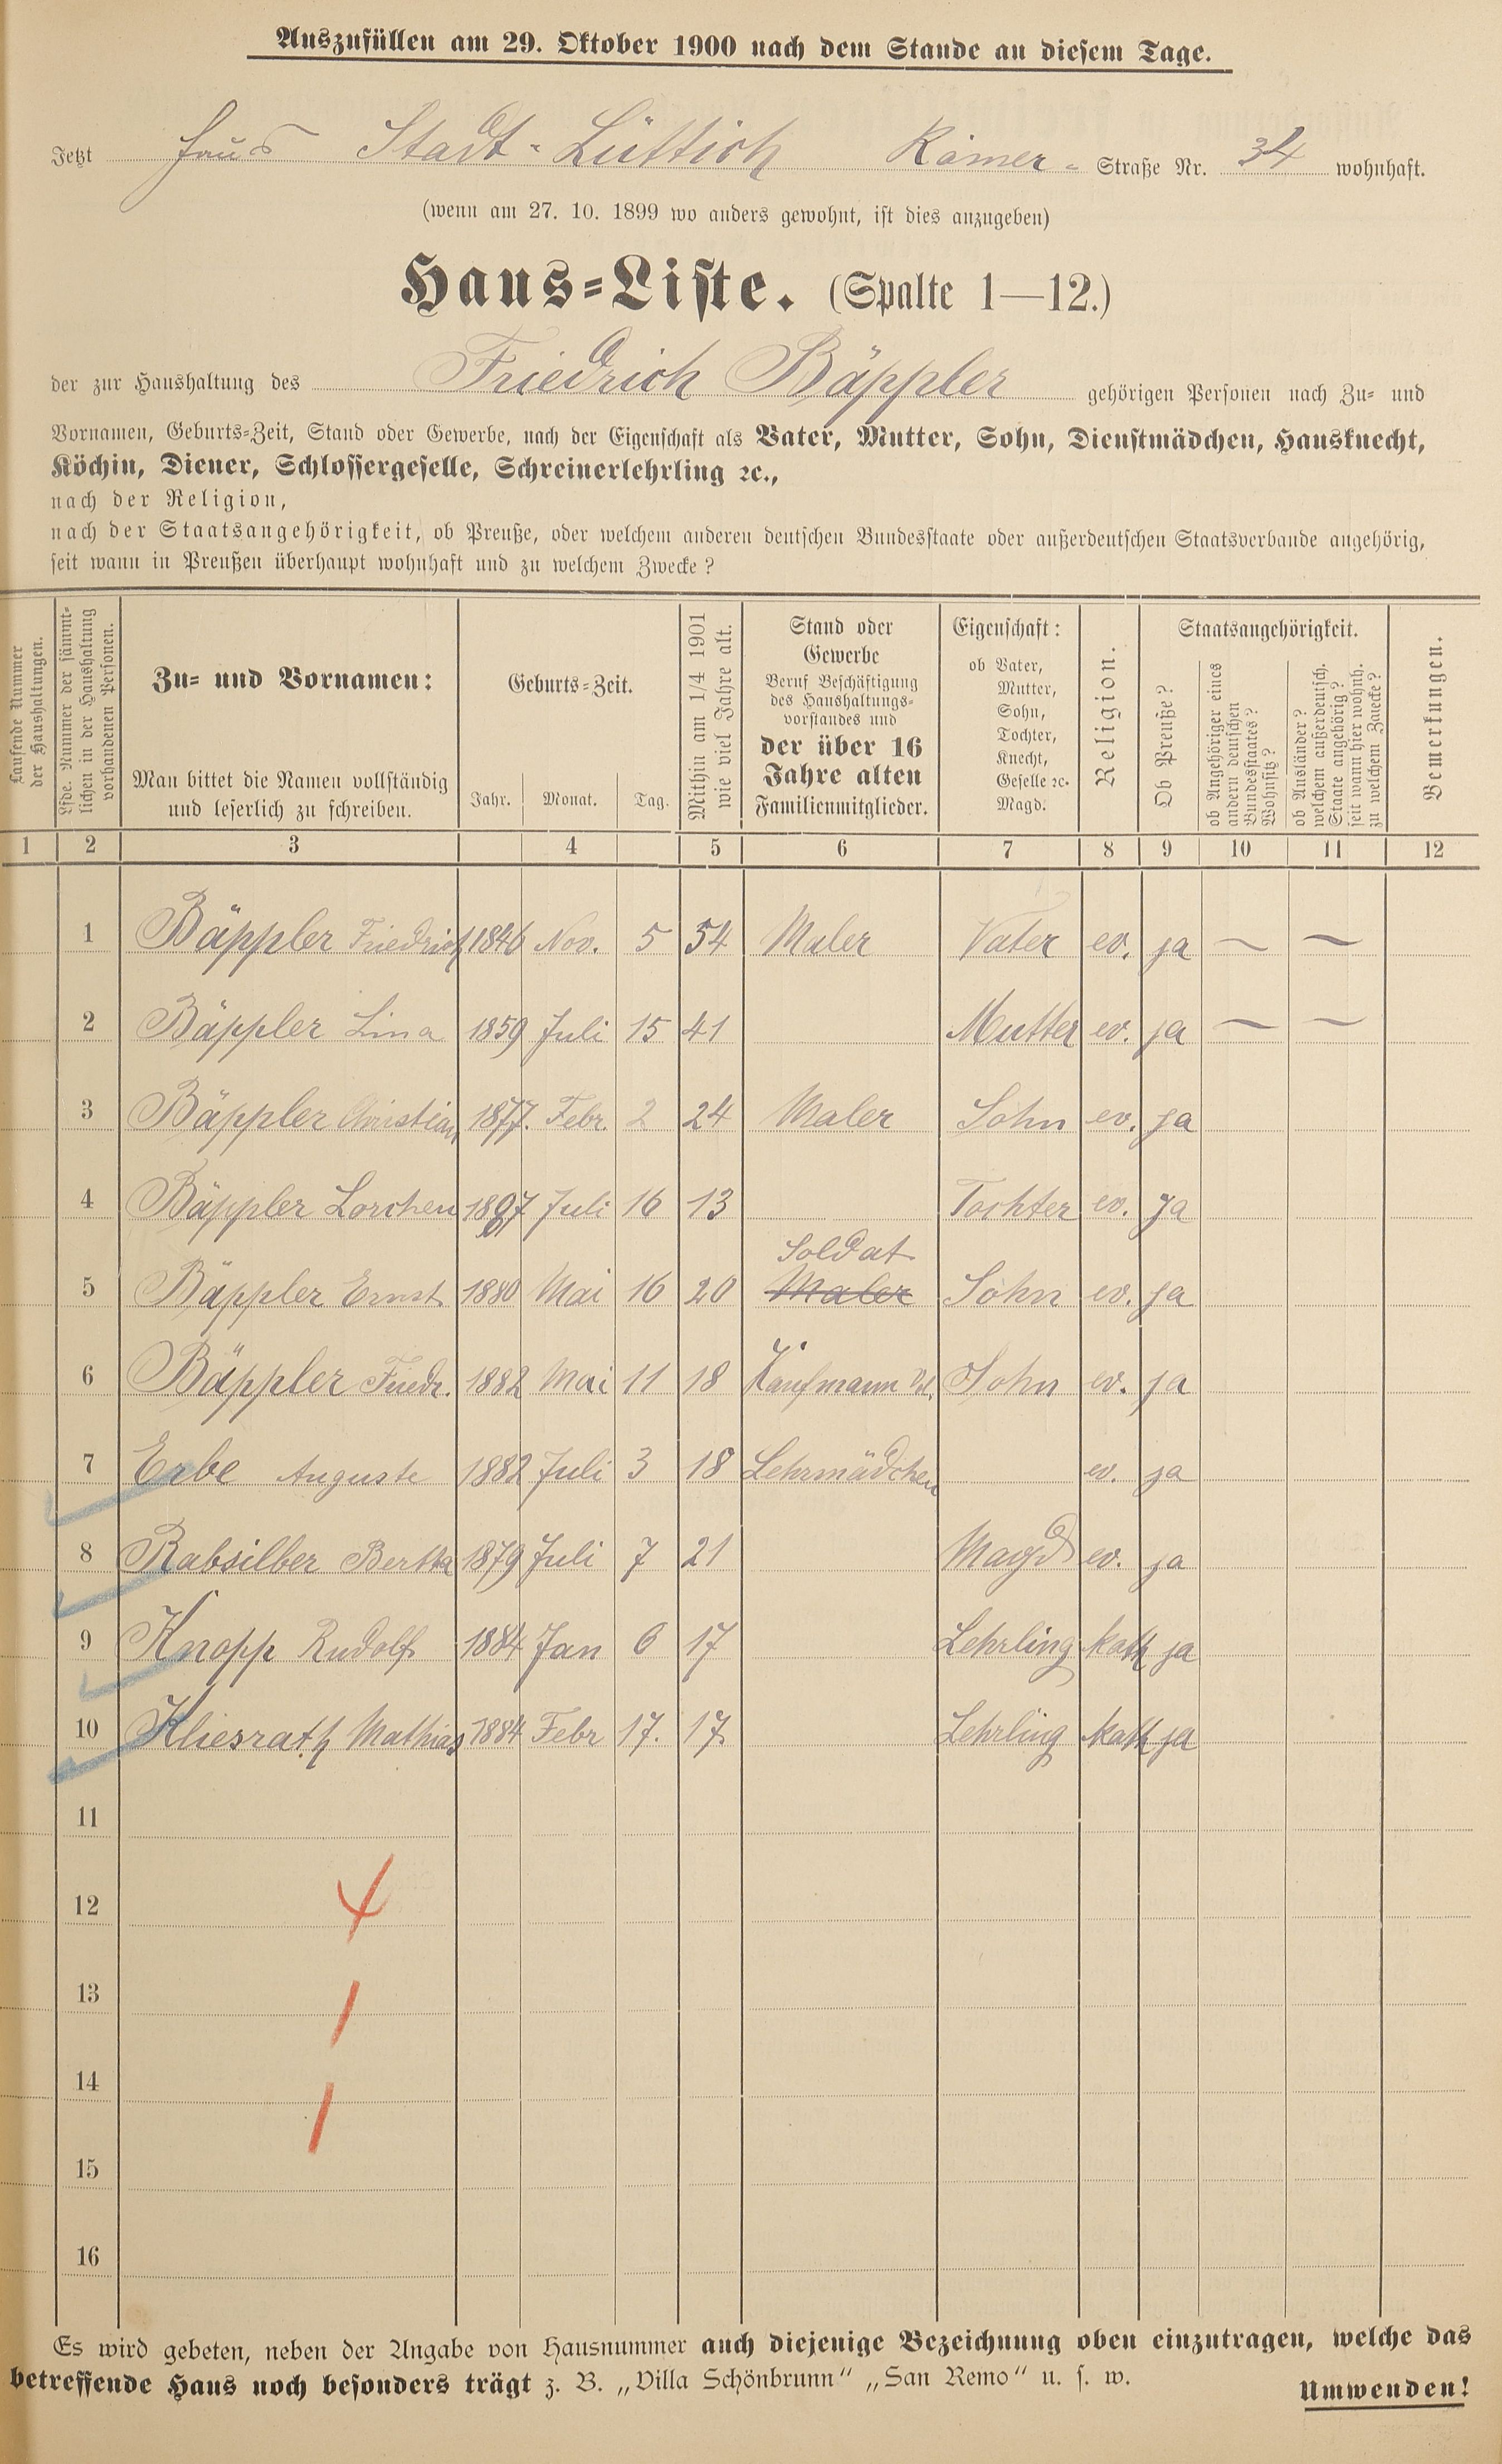 Auszufüllen am 29. Oktober 1900 nach dem Stande an diesem Tage.
Jetzt Haus Stadt-Lüttich Römer- Straße Nr. 34 wohnhaft.
(wenn am 27. 10. 1899 wo anders gewohnt, ist dies anzugeben)
Haus-Liste. (Spalte 1—12.)
der zur Haushaltung des Friedrich Bäppler gehörigen Personen nach Zu- und
Vornamen, Geburts-Zeit, Stand oder Gewerbe, nach der Eigenschaft als Vater, Mutter, Sohn, Dienstmädchen, Hausknecht,
Köchin, Diener, Schlossergeselle, Schreinerlehrling ꝛc.,
nach der Religion,
nach der Staatsangehörigkeit, ob Preuße, oder welchem anderen deutschen Bundesstaate oder außerdeutschen Staatsverbande angehörig,
seit wann in Preußen überhaupt wohnhaft und zu welchem Zwecke?
Laufende Nummer
der Haushaltungen.
Lfde. Nummer der sämmt-
lichen in der Haushaltung
vorhandenen Personen.
Zu- und Vornamen:
Man bittet die Namen vollständig
und leserlich zu schreiben.
Geburts-Zeit.
Jahr. Monat. Tag.
Mithin am 1/4 1901
wie viel Jahre alt.
Stand oder
Gewerbe
Beruf Beschäftigung
des Haushaltungs-
vorstandes und
der über 16
Jahre alten
Familienmitglieder.
Eigenschaft:
ob Vater,
Mutter,
Sohn,
Tochter,
Knecht,
Geselle ꝛc.
Magd.
Religion.
Staatsangehörigkeit.
Ob Preuße?
ob Angehöriger eines
andern deutschen
Bundesstaates?
Wohnsitz?
ob Ausländer?
welchem außerdeutsch.
Staate angehörig?
seit wann hier wohnh.
zu welchem Zwecke?
Bemerkungen.
1 2 3 4 5 6 7 8 9 10 11 12
1 Bäppler Friedrich 1846 Nov. 5 54 Maler Vater ev. ja — —
2 Bäppler Lina 1859 Juli 15 41 Mutter ev. ja — —
3 Bäppler Christian 1877. Febr. 2 24 Maler Sohn ev. ja
4 Bäppler Lorchen 1887 Juli 16 13 Tochter ev. ja
Soldat
5 Bäppler Ernst 1880 Mai 16 20 Maler Sohn ev. ja
6 Bäppler Friedr. 1882 Mai 11 18 Kaufmann Sohn ev. ja
7 Erbe Auguste 1882 Juli 3 18 Lehrmädchen ev. ja
8 Rabsilber Bertha 1879 Juli 7 21 Magd ev. ja
9 Knopp Rudolf 1884 Jan 6 17 Lehrling kath ja
10 Kliesrath Mathias 1884 Febr 17. 17 Lehrling kath ja
11
12 4
13 1
14 1
15
16
Es wird gebeten, neben der Angabe von Hausnummer auch diejenige Bezeichnung oben einzutragen, welche das
betreffende Haus noch besonders trägt z. B. „Villa Schönbrunn“ „San Remo“ u. s. w.
Umwenden!